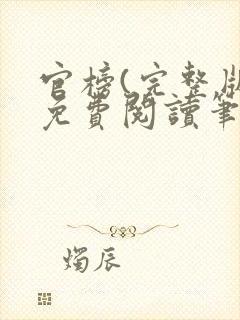 官榜(完整版
免費閱讀筆
燭辰